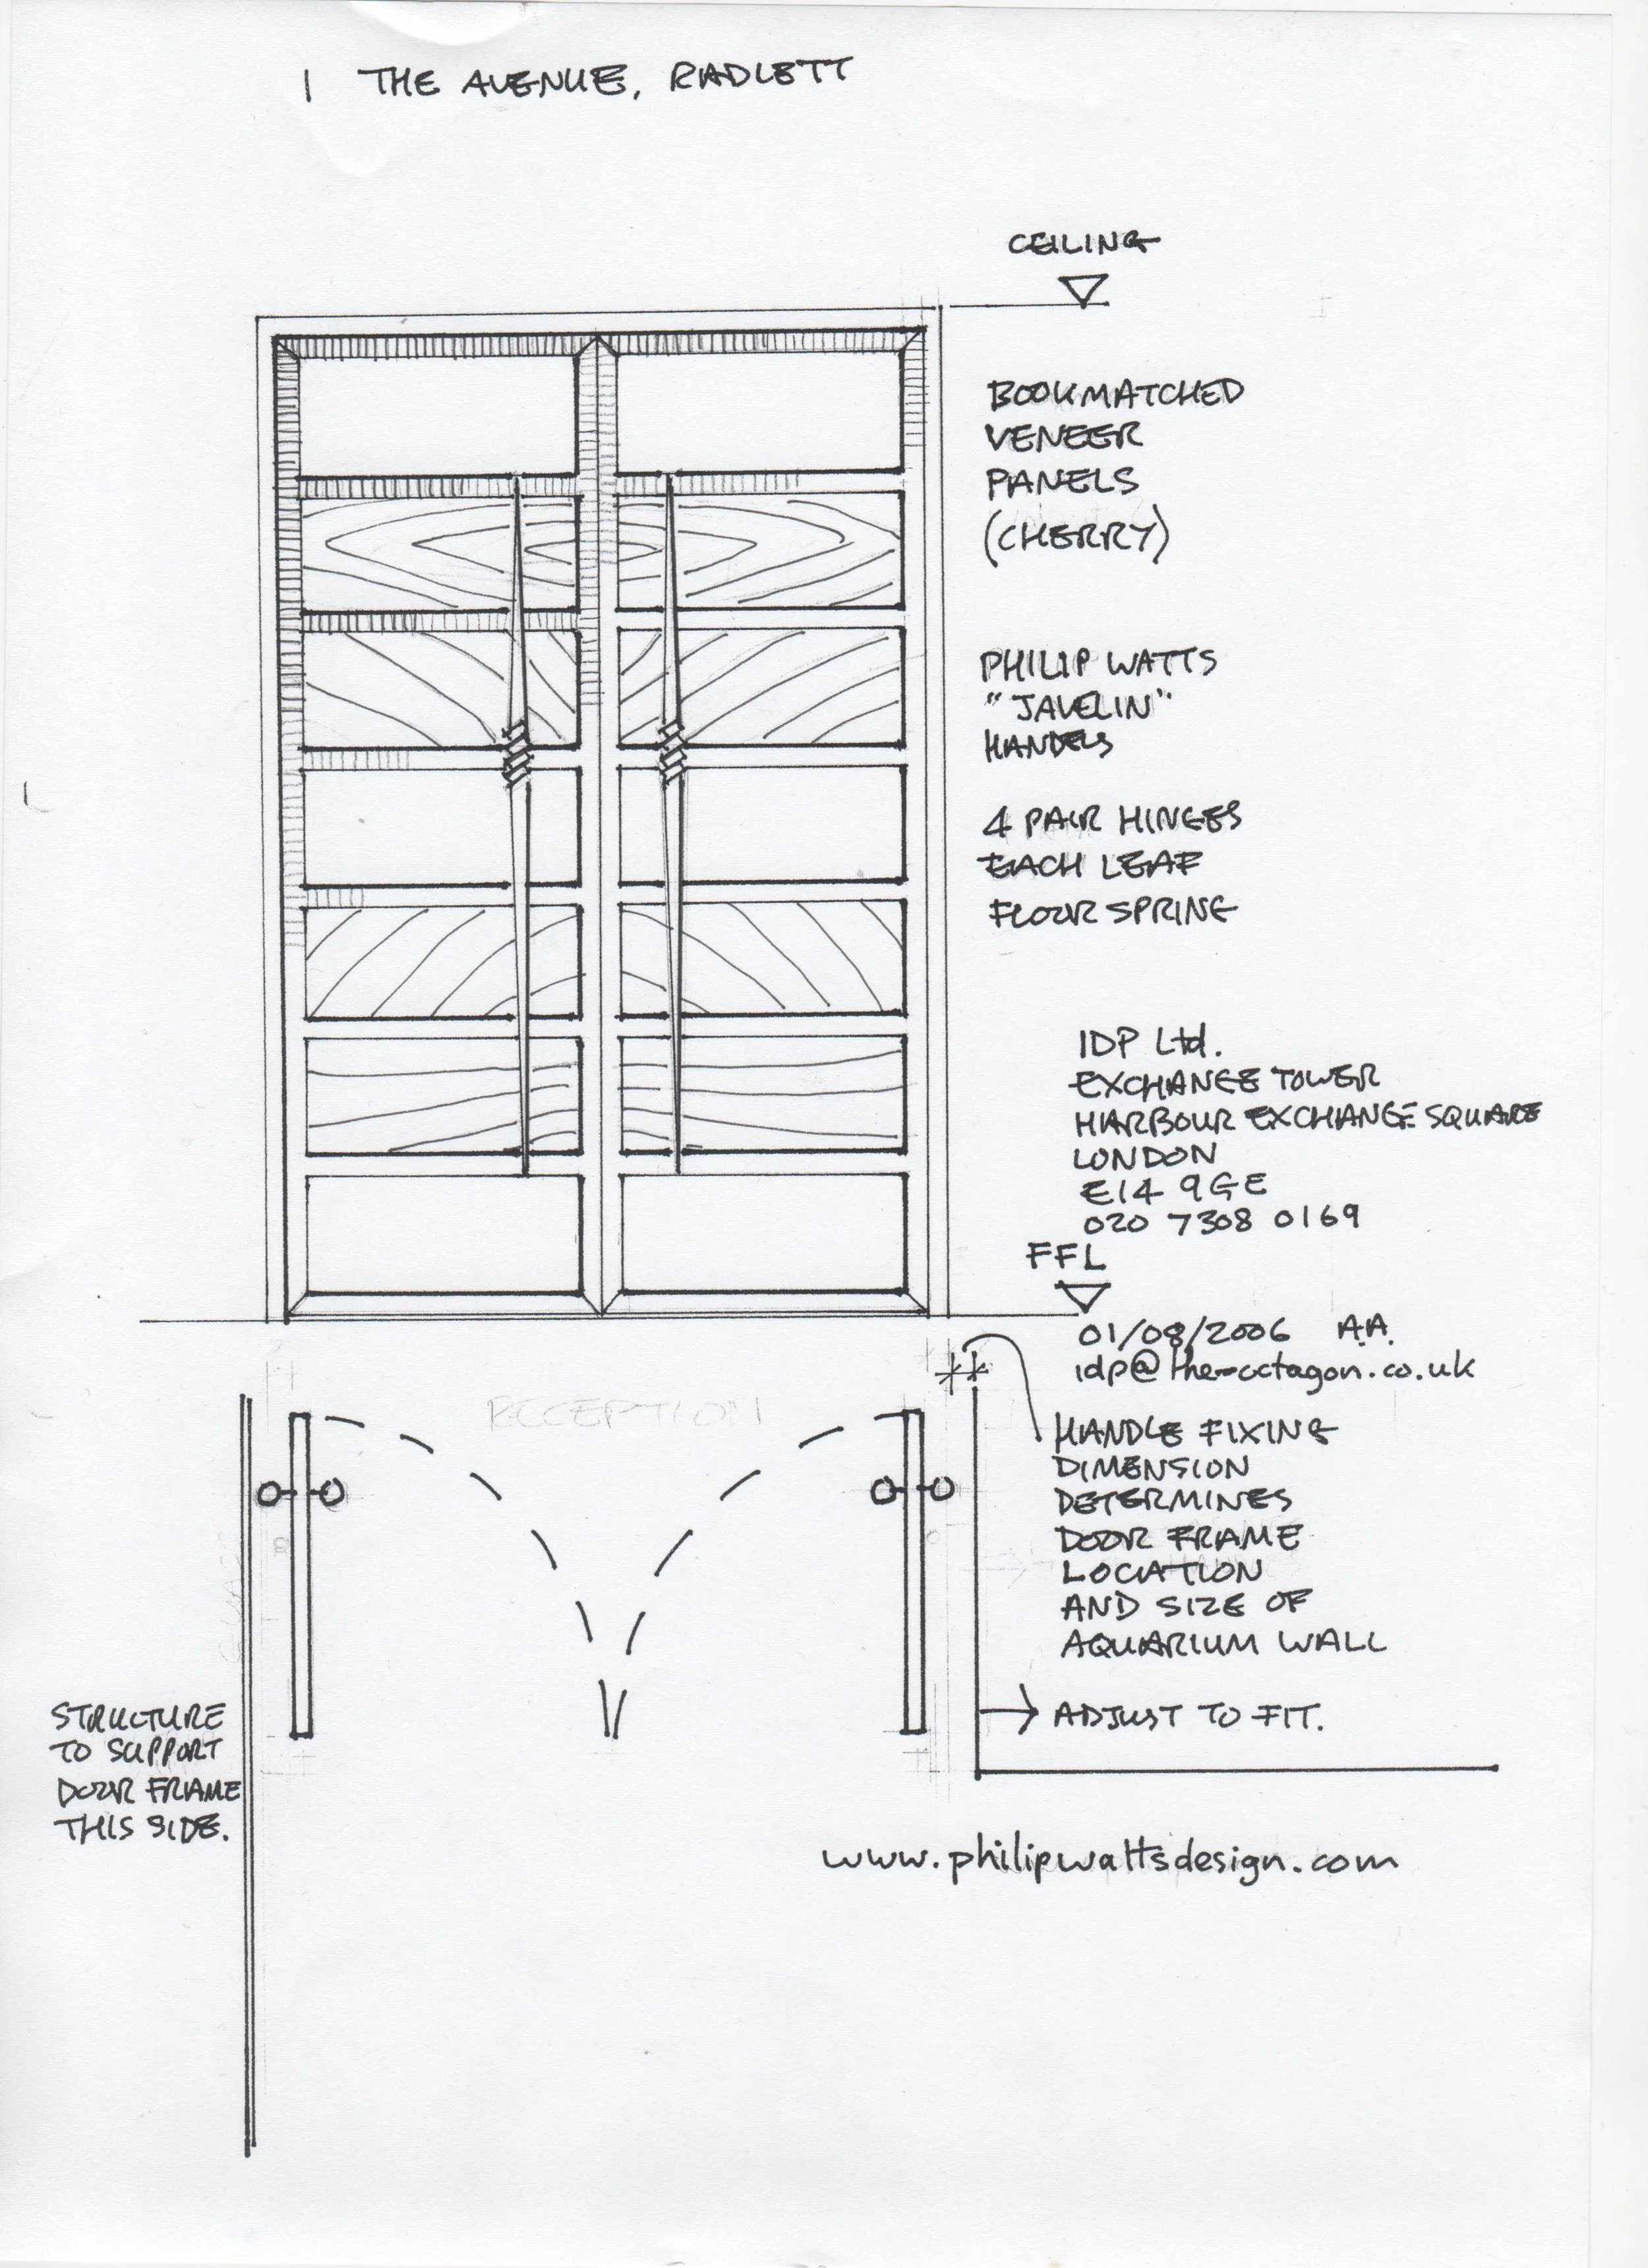 1 THE AVENUE, RADLETT
CEILING
BOOKMATCHED
VENEER
PANELS
(CHERRY)
PHILIP WATTS
"JAVELIN"
HANDELS
4 PAIR HINGES
EACH LEAF
FLOOR SPRING
IDP Ltd.
EXCHANGE TOWER
HARBOUR EXCHANGE SQUARE
LONDON
E14 9GE
020 7308 0169
FFL
01/08/2006 A.A.
idp@the-octagon.co.uk
RECEPTION
HANDLE FIXING
DIMENSION
DETERMINES
DOOR FRAME
LOCATION
AND SIZE OF
AQUARIUM WALL
ADJUST TO FIT.
STRUCTURE
TO SUPPORT
DOOR FRAME
THIS SIDE.
www.philipwattsdesign.com